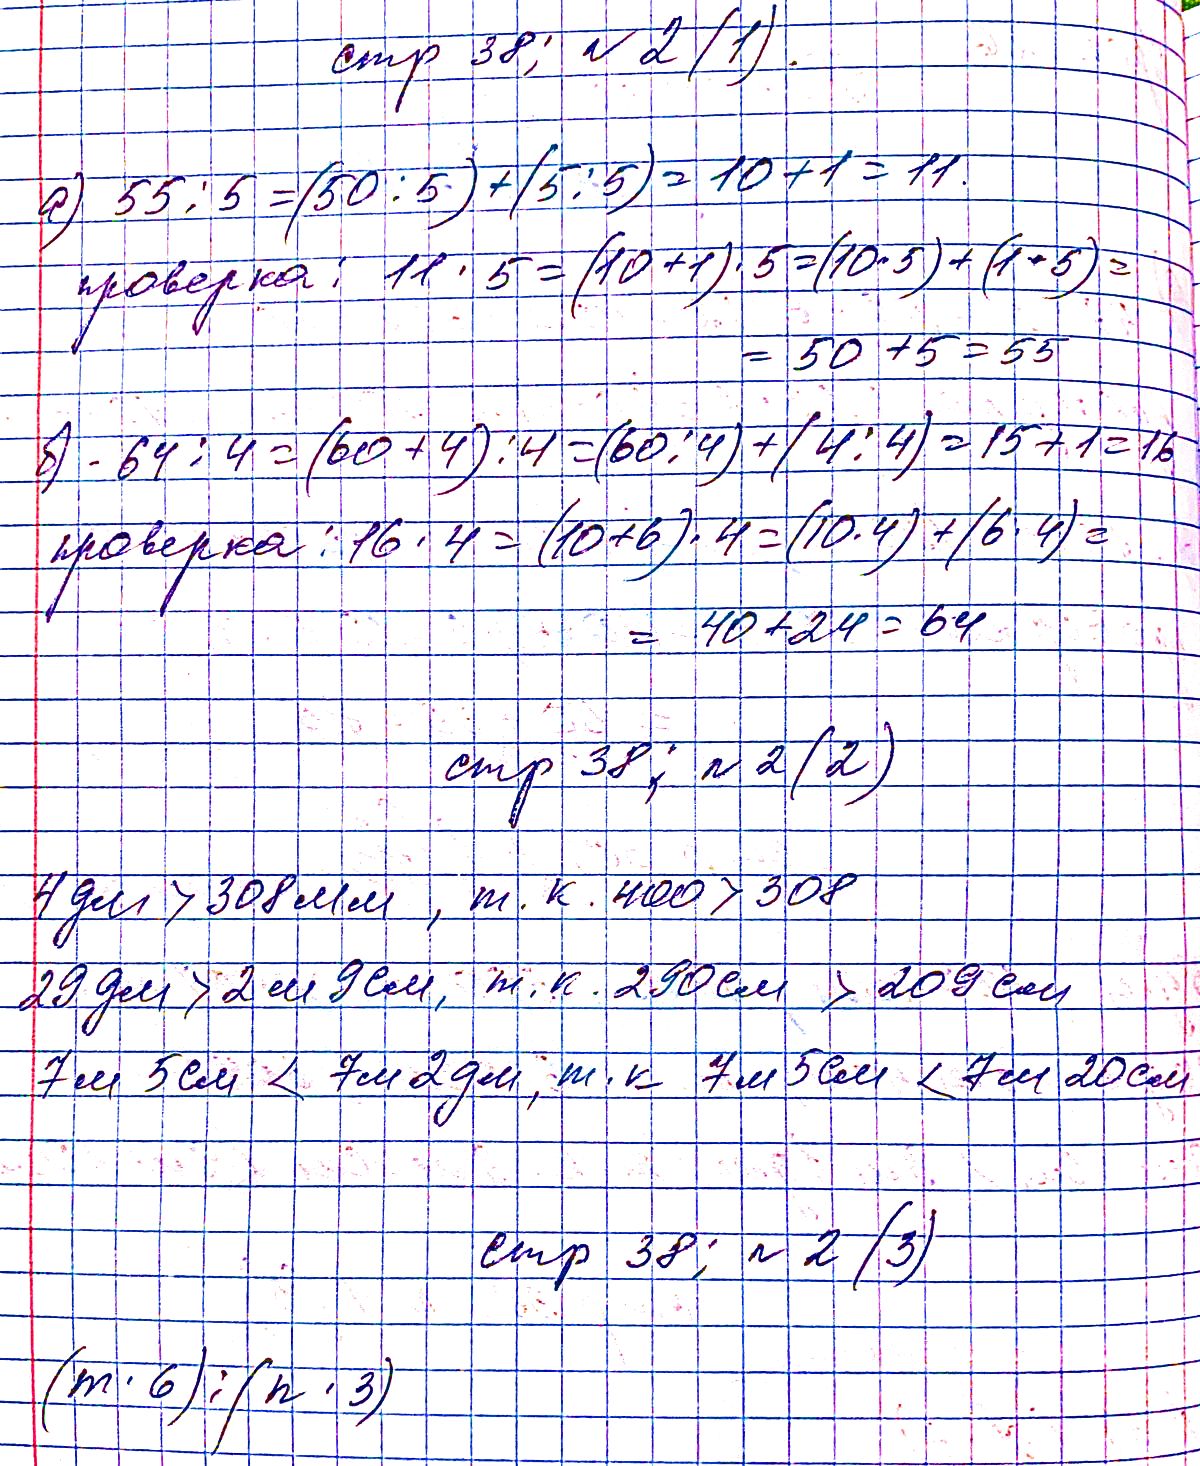 стр 38; № 2 (1).
а) 55 : 5 = (50 : 5) + (5 : 5) = 10 + 1 = 11.
проверка: 11 · 5 = (10 + 1) · 5 = (10 · 5) + (1 · 5) =
= 50 + 5 = 55
б) 64 : 4 = (60 + 4) : 4 = (60 : 4) + (4 : 4) = 15 + 1 = 16
проверка: 16 · 4 = (10 + 6) · 4 = (10 · 4) + (6 · 4) =
= 40 + 24 = 64
стр 38; № 2 (2)
4 дм > 308 мм, т.к. 400 > 308
29 дм > 2 м 9 см, т.к. 290 см > 209 см
7 м 5 см < 7 м 2 дм, т.к 7 м 5 см < 7 м 20 см
стр 38; № 2 (3)
(m · 6) : (n · 3)